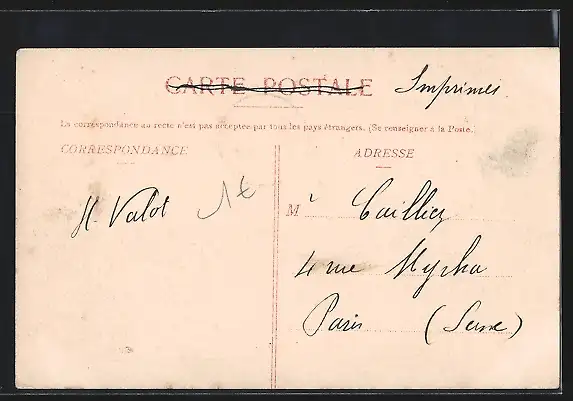 CARTE POSTALE
Imprimés
La correspondance au recto n'est pas acceptée par tous les pays étrangers. (Se renseigner à la Poste.
CORRESPONDANCE
ADRESSE
H. Valot
1€
M Cailliez
4 rue Myrha
Paris (Seine)